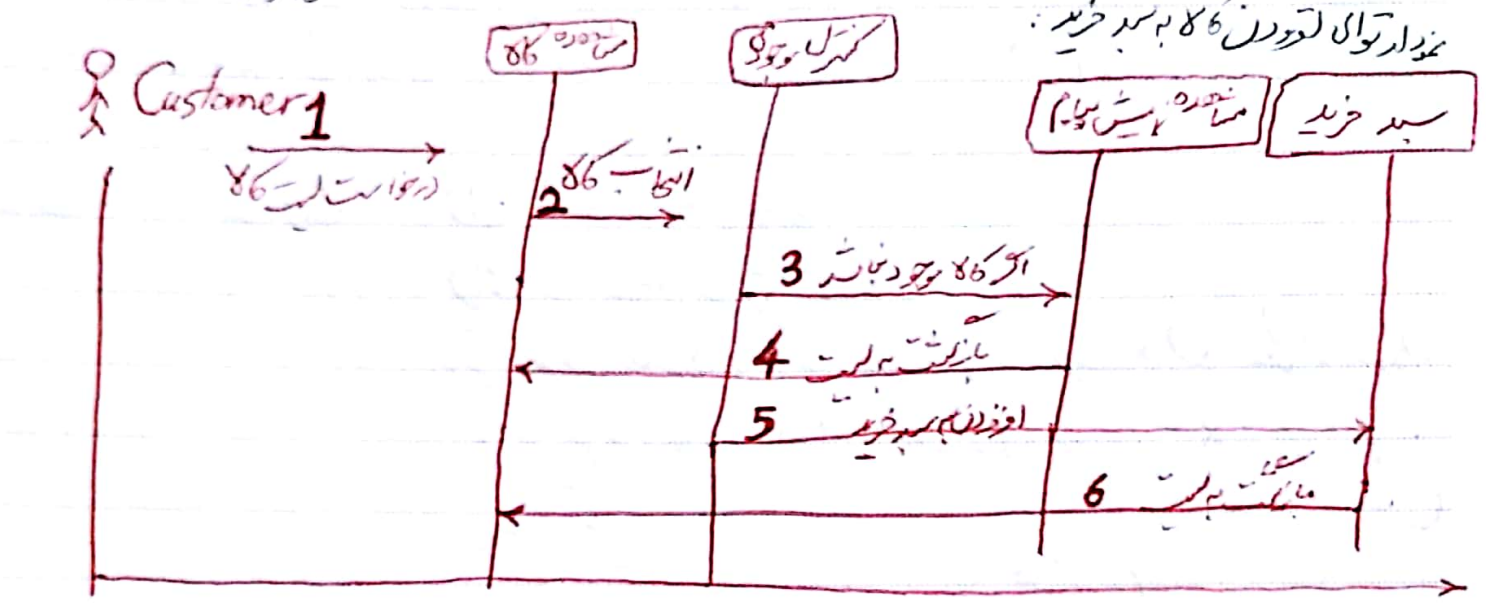 نمودار توالی افزودن کالا به سبد خرید :
Customer
مشاهده کالا
کنترل موجودی
مشاهده نمایش پیام
سبد خرید
1 درخواست لیست کالا
2 انتخاب کالا
3 اگر کالا موجود نباشد
4 بازگشت به لیست
5 افزودن به سبد خرید
6 بازگشت به لیست